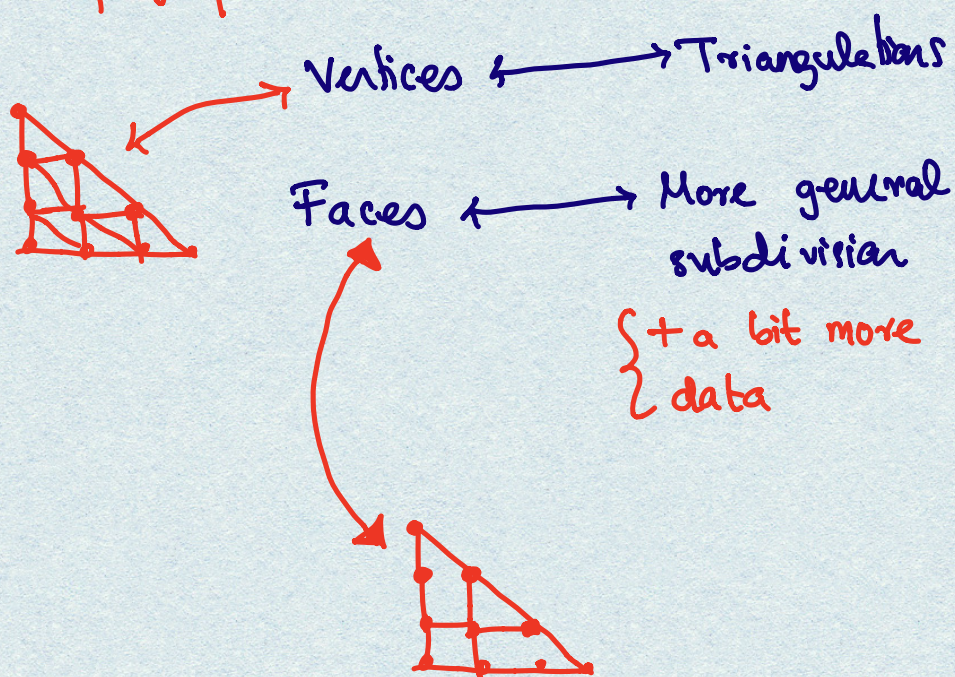 Vertices ↔ Triangulations
Faces ↔ More general
subdivision
{+ a bit more
data